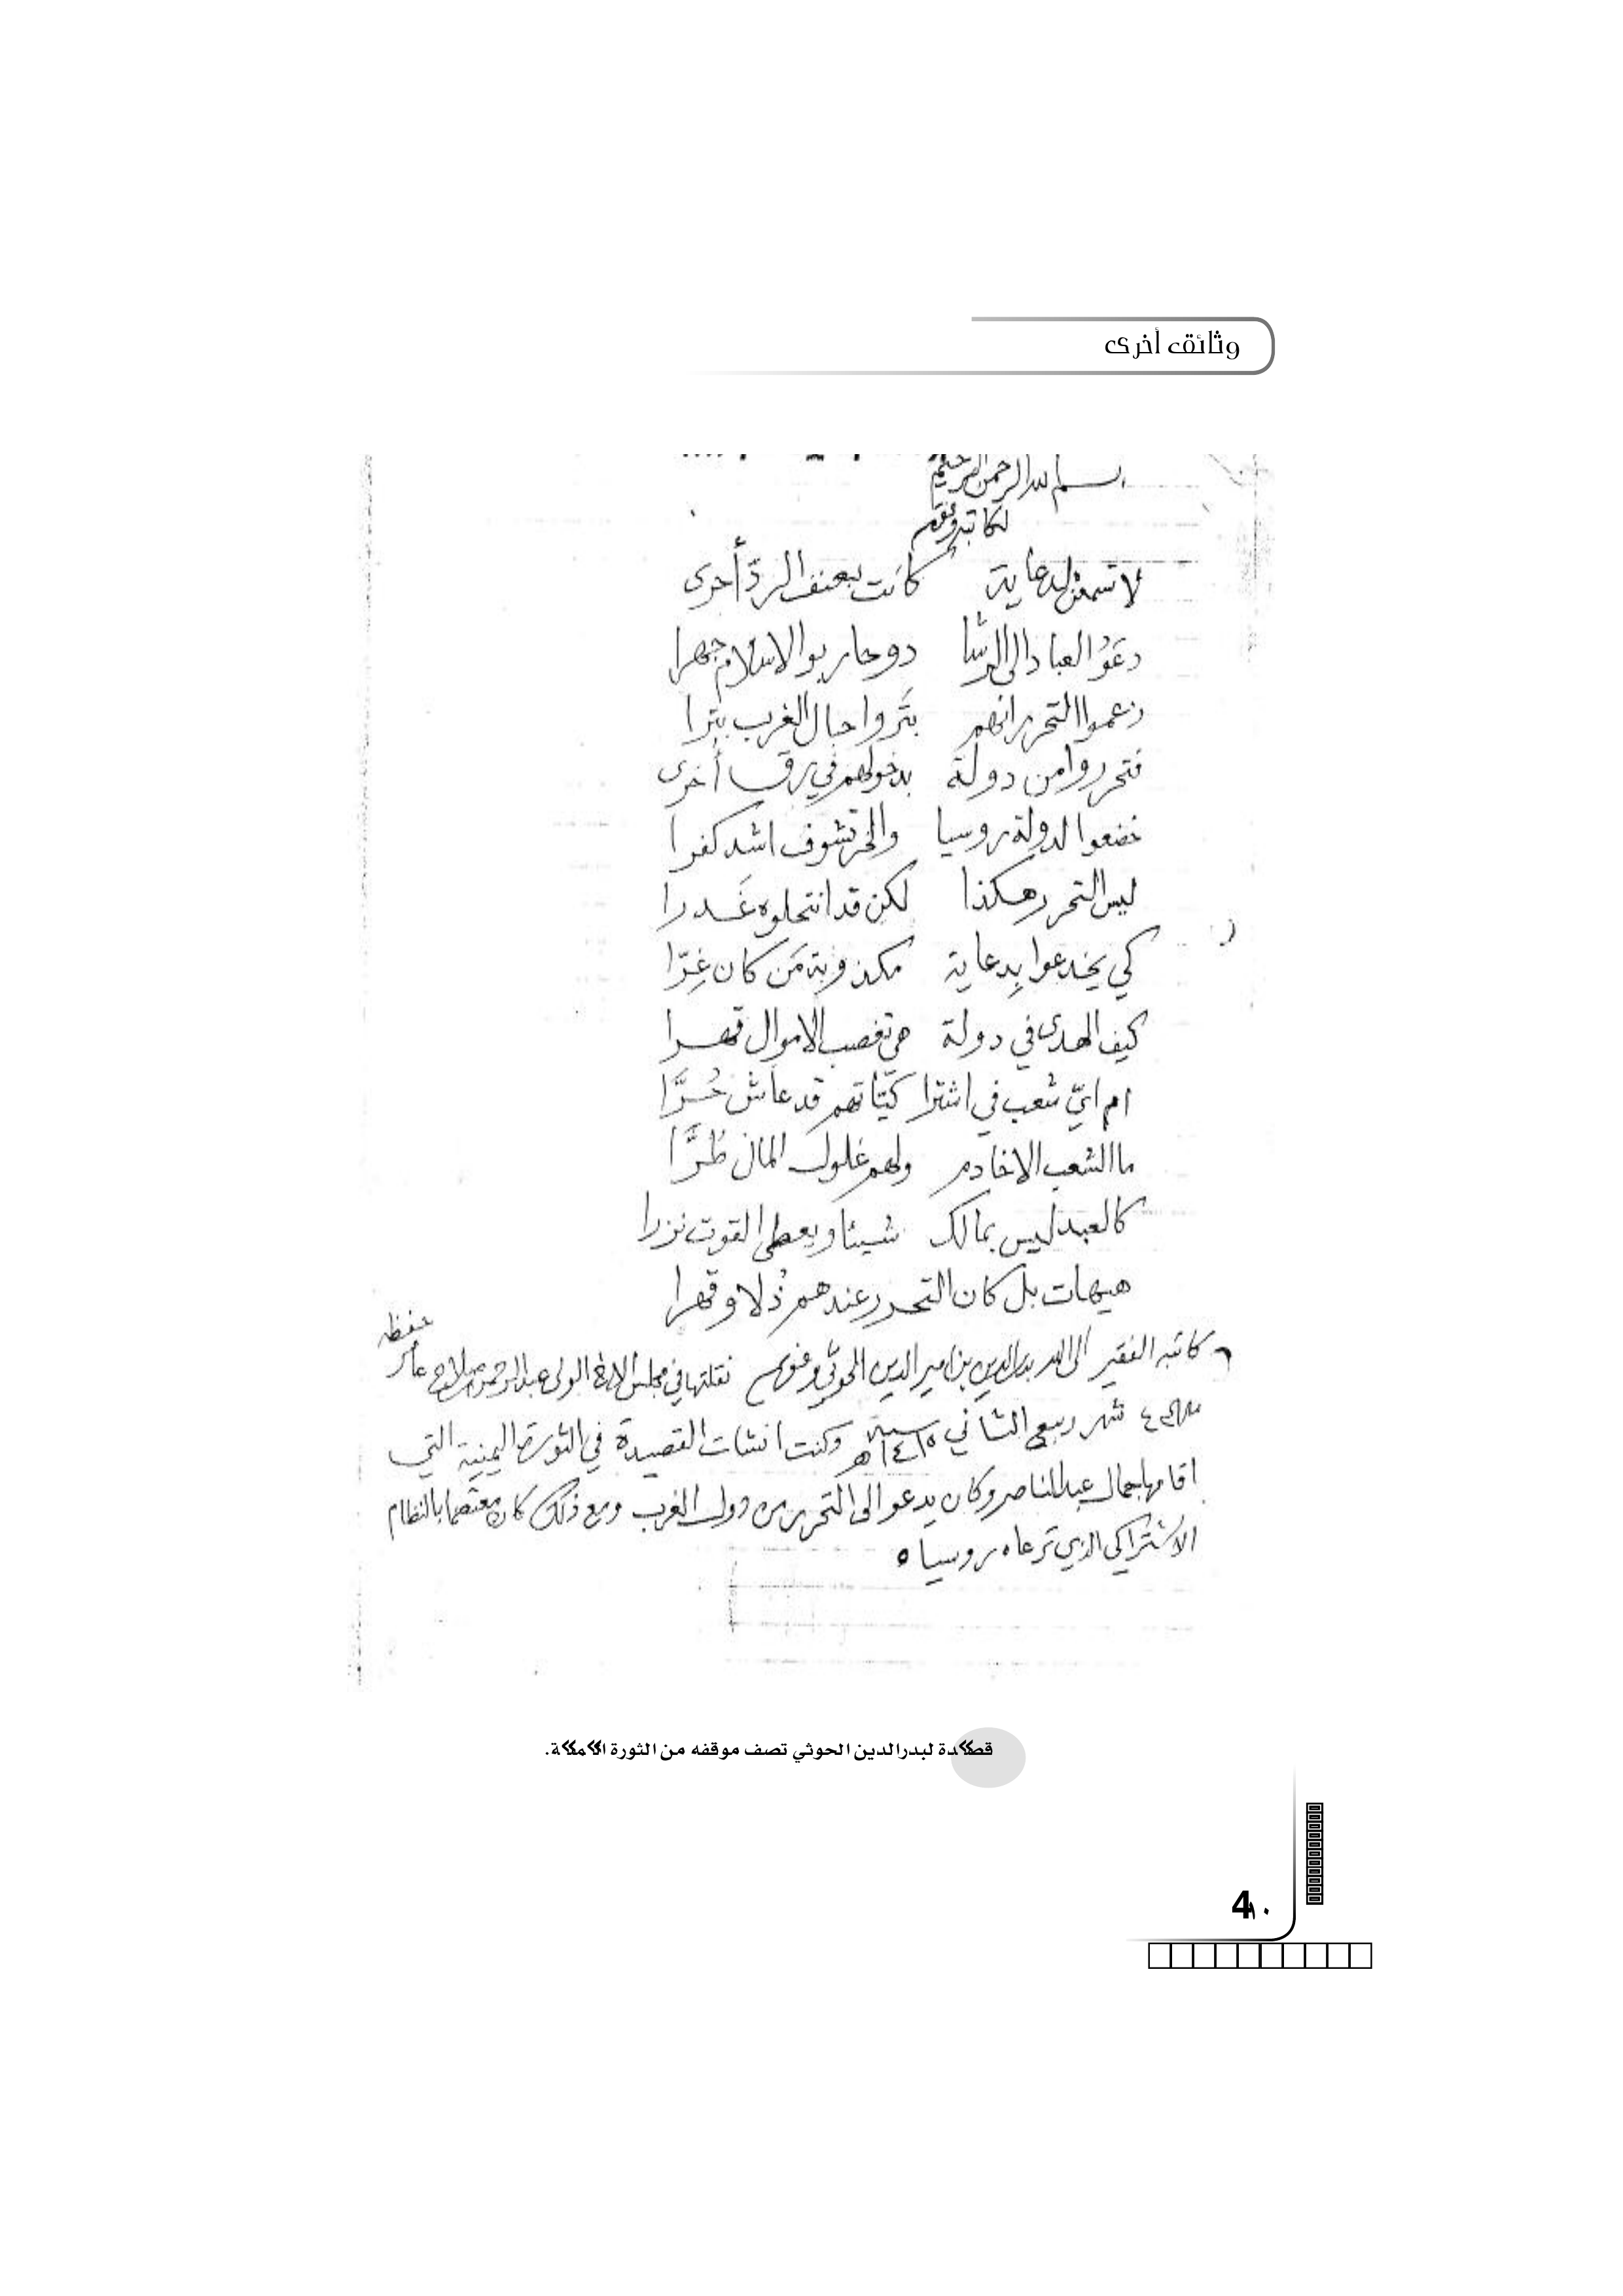 وثائق أخرى
بسم الله الرحمن الرحيم
لكاتبه وفقه
لا تسمعنّ لدعاية كانت بعنف الردّ أحرى
دعَوُا العباد الى الرشا دو حاربوا الاسلام جهرا
زعموا التحرر انهم بتَروا حبال الغرب بترا
فتحرروا من دولة بدخولهم في رق أخرى
خضعوا لدولة روسيا والخرتشوف اشد كفرا
ليس التحرر هكذا لكن قد انتحلوه غَدرا
كي يخدعوا بِدعاية مكذوبة مَن كان غِرّا
كيف الهدى في دولة هي تغصب الاموال قهرا
ام ايّ شعب في اشترا كيّاتهم قد عاش حُرَّا
ما الشعب الا خادم ولهم غلول المال طُرَّا
كالعبد ليس بمالك شيئا ويعطى القوت نزرا
هيهات بل كان التحرر عندهم ذُلا وقهرا
كاتبه الفقير الى الله بدر الدين بن امير الدين الحوثي وفقهم نقلتها في مجلس الاخ الولي عبد الرحمن صلاح عامر حفظه
٤ شهر ربيع الثاني سنة ١٤١٥هـ وكنت انشات القصيدة في الثورة اليمنية التي
اقامها جمال عبد الناصر وكان يدعو الى التحرر من دول الغرب ومع ذلك كان معتصما بالنظام
الاشتراكي الذي ترعاه روسيا ه
قصيدة لبدرالدين الحوثي تصف موقفه من الثورة اليمنية.